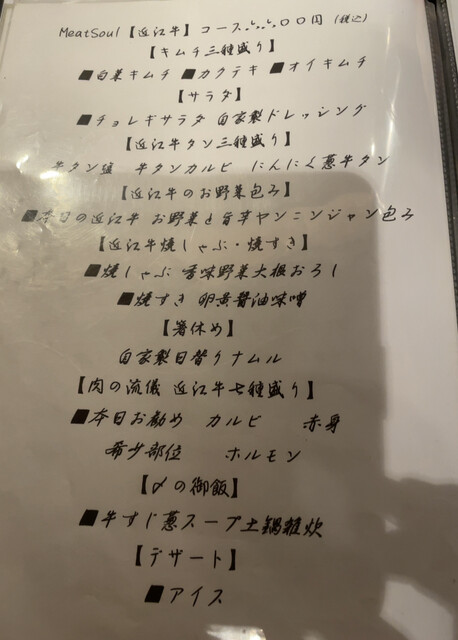 MeatSoul【近江牛】コース六、六〇〇円(税込)
【キムチ三種盛り】
■白菜キムチ ■カクテキ ■オイキムチ
【サラダ】
■チョレギサラダ 自家製ドレッシング
【近江牛タン三種盛り】
牛タン塩 牛タンカルビ にんにく葱牛タン
【近江牛のお野菜包み】
■本日の近江牛 お野菜と旨辛ヤンニンジャン包み
【近江牛焼しゃぶ・焼すき】
■焼しゃぶ 香味野菜大根おろし
■焼すき 卵黄醬油味噌
【箸休め】
自家製日替りナムル
【肉の流儀 近江牛七種盛り】
■本日お勧め カルビ 赤身
希少部位 ホルモン
【〆の御飯】
■牛すじ葱スープ土鍋雑炊
【デザート】
■アイス